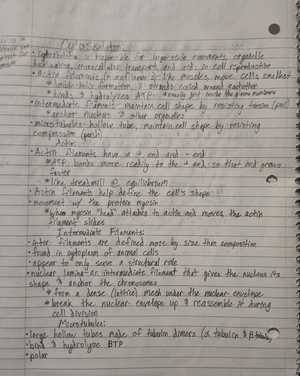 Cytoskeleton
• cytoskeleton is responsible for large scale movements, organelle
positioning, intracellular transport, and aids in cell reproduction
• Actin filaments (microfilaments): like muscles, move cells smallest
* double helix formation, 2 strands coiled around eachother
* binds & hydrolyzes ATP * usually just inside the plasma membrane
• intermediate filaments: maintain cell shape by resisting tension (pull)
* anchor nucleus & other organelles
• microtubules: hollow tube, maintain cell shape by resisting
compression (push)
Actin:
• Actin filaments have a + end and - end
* ATP bonds more readily to the + end, so that end grows
faster
* like treadmill @ equilibrium
• Actin filaments help define the cell's shape
• movement w/ the protein myosin
* when myosin "head" attaches to actin and moves, the actin
filament slides
Intermediate Filaments:
• inter. filaments are defined more by size than composition
• found in cytoplasm of animal cells
• appear to only serve a structural role
• nuclear lamina: an intermediate filament that gives the nucleus its
shape & anchor the chromosomes
* form a dense (lattice) mesh under the nuclear envelope
* break the nuclear envelope up & reassemble it during
cell division
Microtubules:
• large hollow tubes made of tubulin dimers (α tubulin & β tubulin)
• bind & hydrolyze GTP
• polar